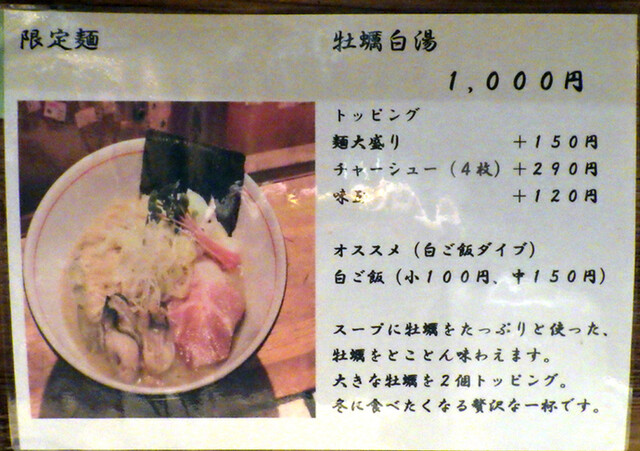 限定麺
牡蠣白湯
1,000円
トッピング
麺大盛り ＋150円
チャーシュー（4枚）＋290円
味玉 ＋120円
オススメ（白ご飯ダイブ）
白ご飯（小100円、中150円）
スープに牡蠣をたっぷりと使った、
牡蠣をとことん味わえます。
大きな牡蠣を2個トッピング。
冬に食べたくなる贅沢な一杯です。